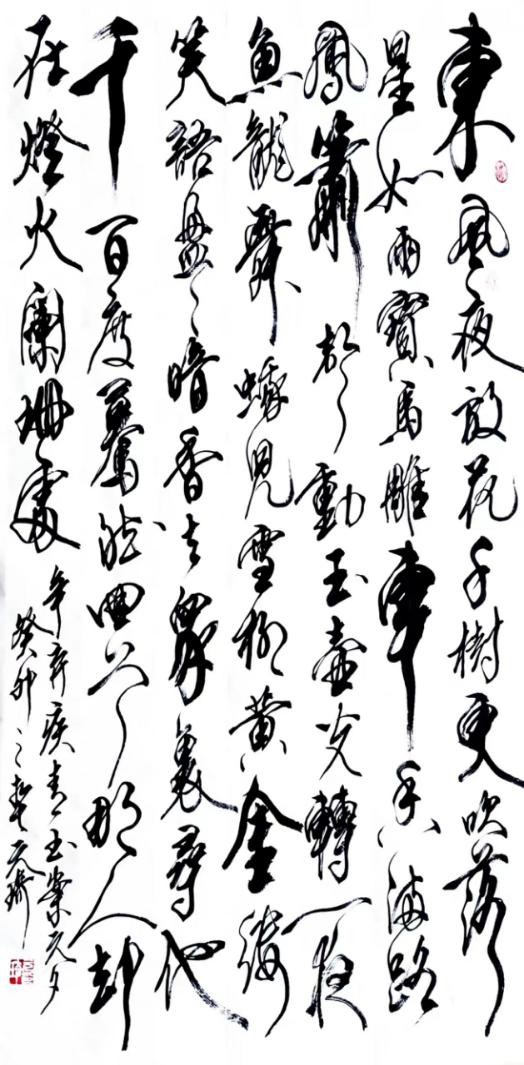 東風夜放花千樹更吹落
星如雨寶馬雕車香滿路
鳳簫聲動玉壺光轉一夜
魚龍舞蛾兒雪柳黃金縷
笑語盈盈暗香去眾裏尋他
千百度驀然回首那人卻
在燈火闌珊處
辛棄疾青玉案元夕
癸卯之